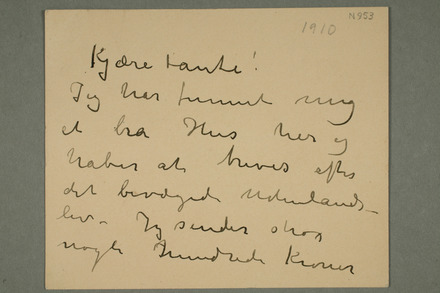 N.953
1910
Kjære tante!
Jeg har funnet mig
et bra Hus her og
haber at trives efter
det bevægede Udenlands-
liv – Jeg sender strax
nogle Hundrede Kroner